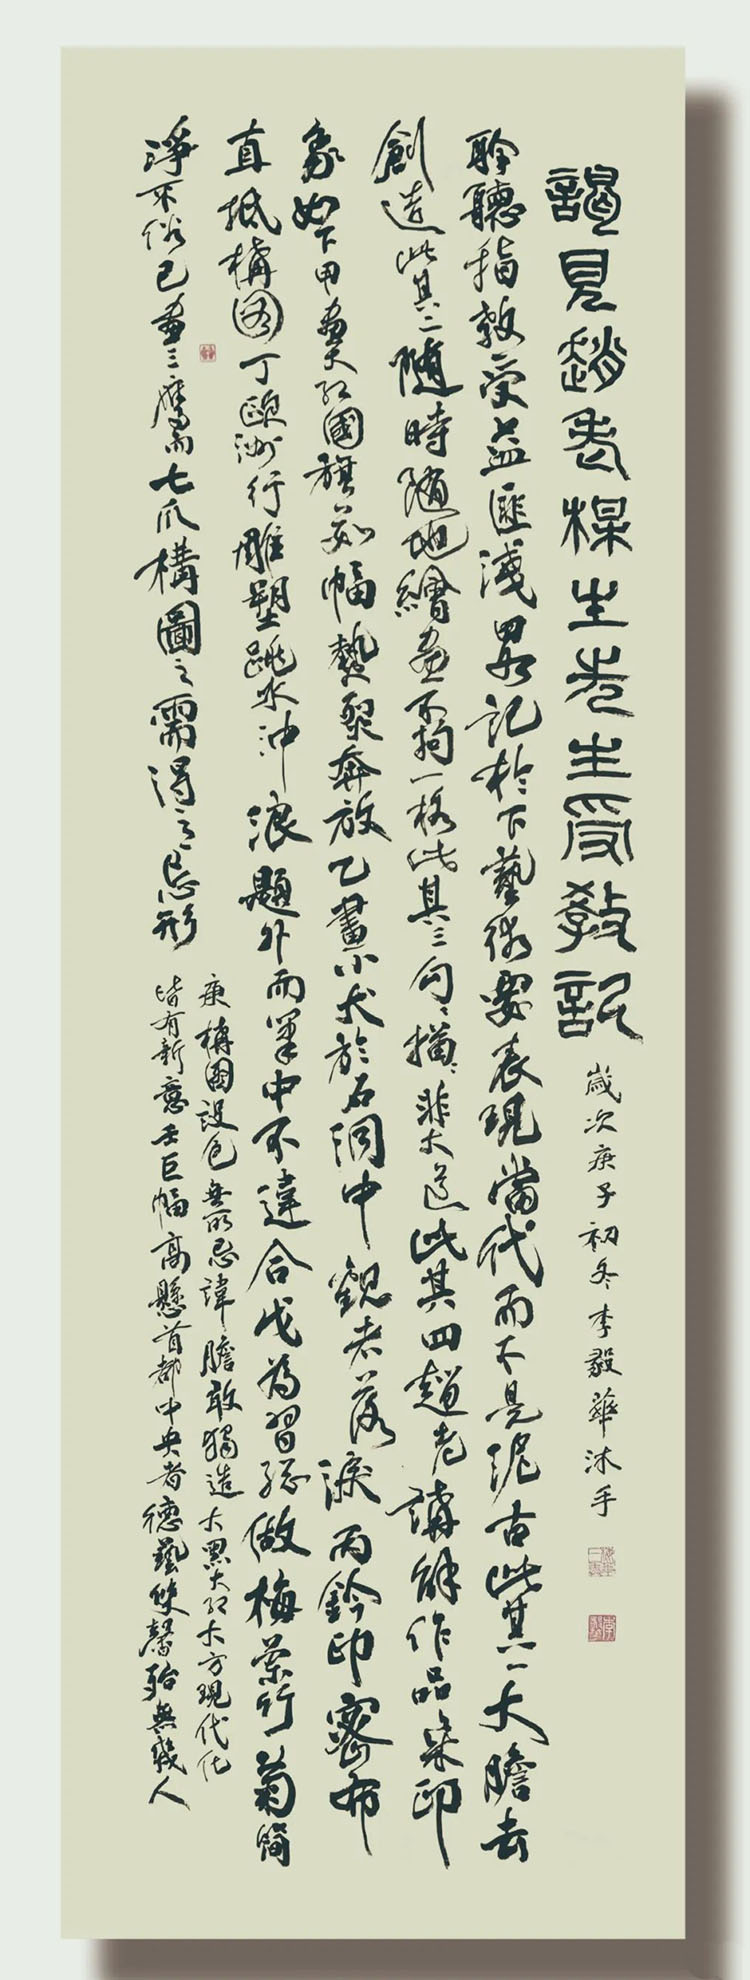 謁見趙老棵生先生受教記
歲次庚子初冬李毅華沐手
聆聽指教受益匪淺畧記於下藝術要表現當代而不是泥古此其一大膽去
創造此其二隨時隨地繪畫不拘一格此其三勾勾描描非大道此其四趙老講解作品集印
象如下甲畫大紅國旗茹幅熱烈奔放乙畫小犬於石洞中觀者落淚丙鈐印密布
直抵構图丁歐洲行雕塑跳水沖浪題外而筆中不違合戊為習繇做梅蘭竹菊簡
淨不俗已畫三鷹而七爪構圖之需得之忘形
庚構圖設色無所忌諱膽敢獨造大黑大紅大方現代化
皆有新意壬巨幅高懸首都中央者德藝雙馨殆無幾人